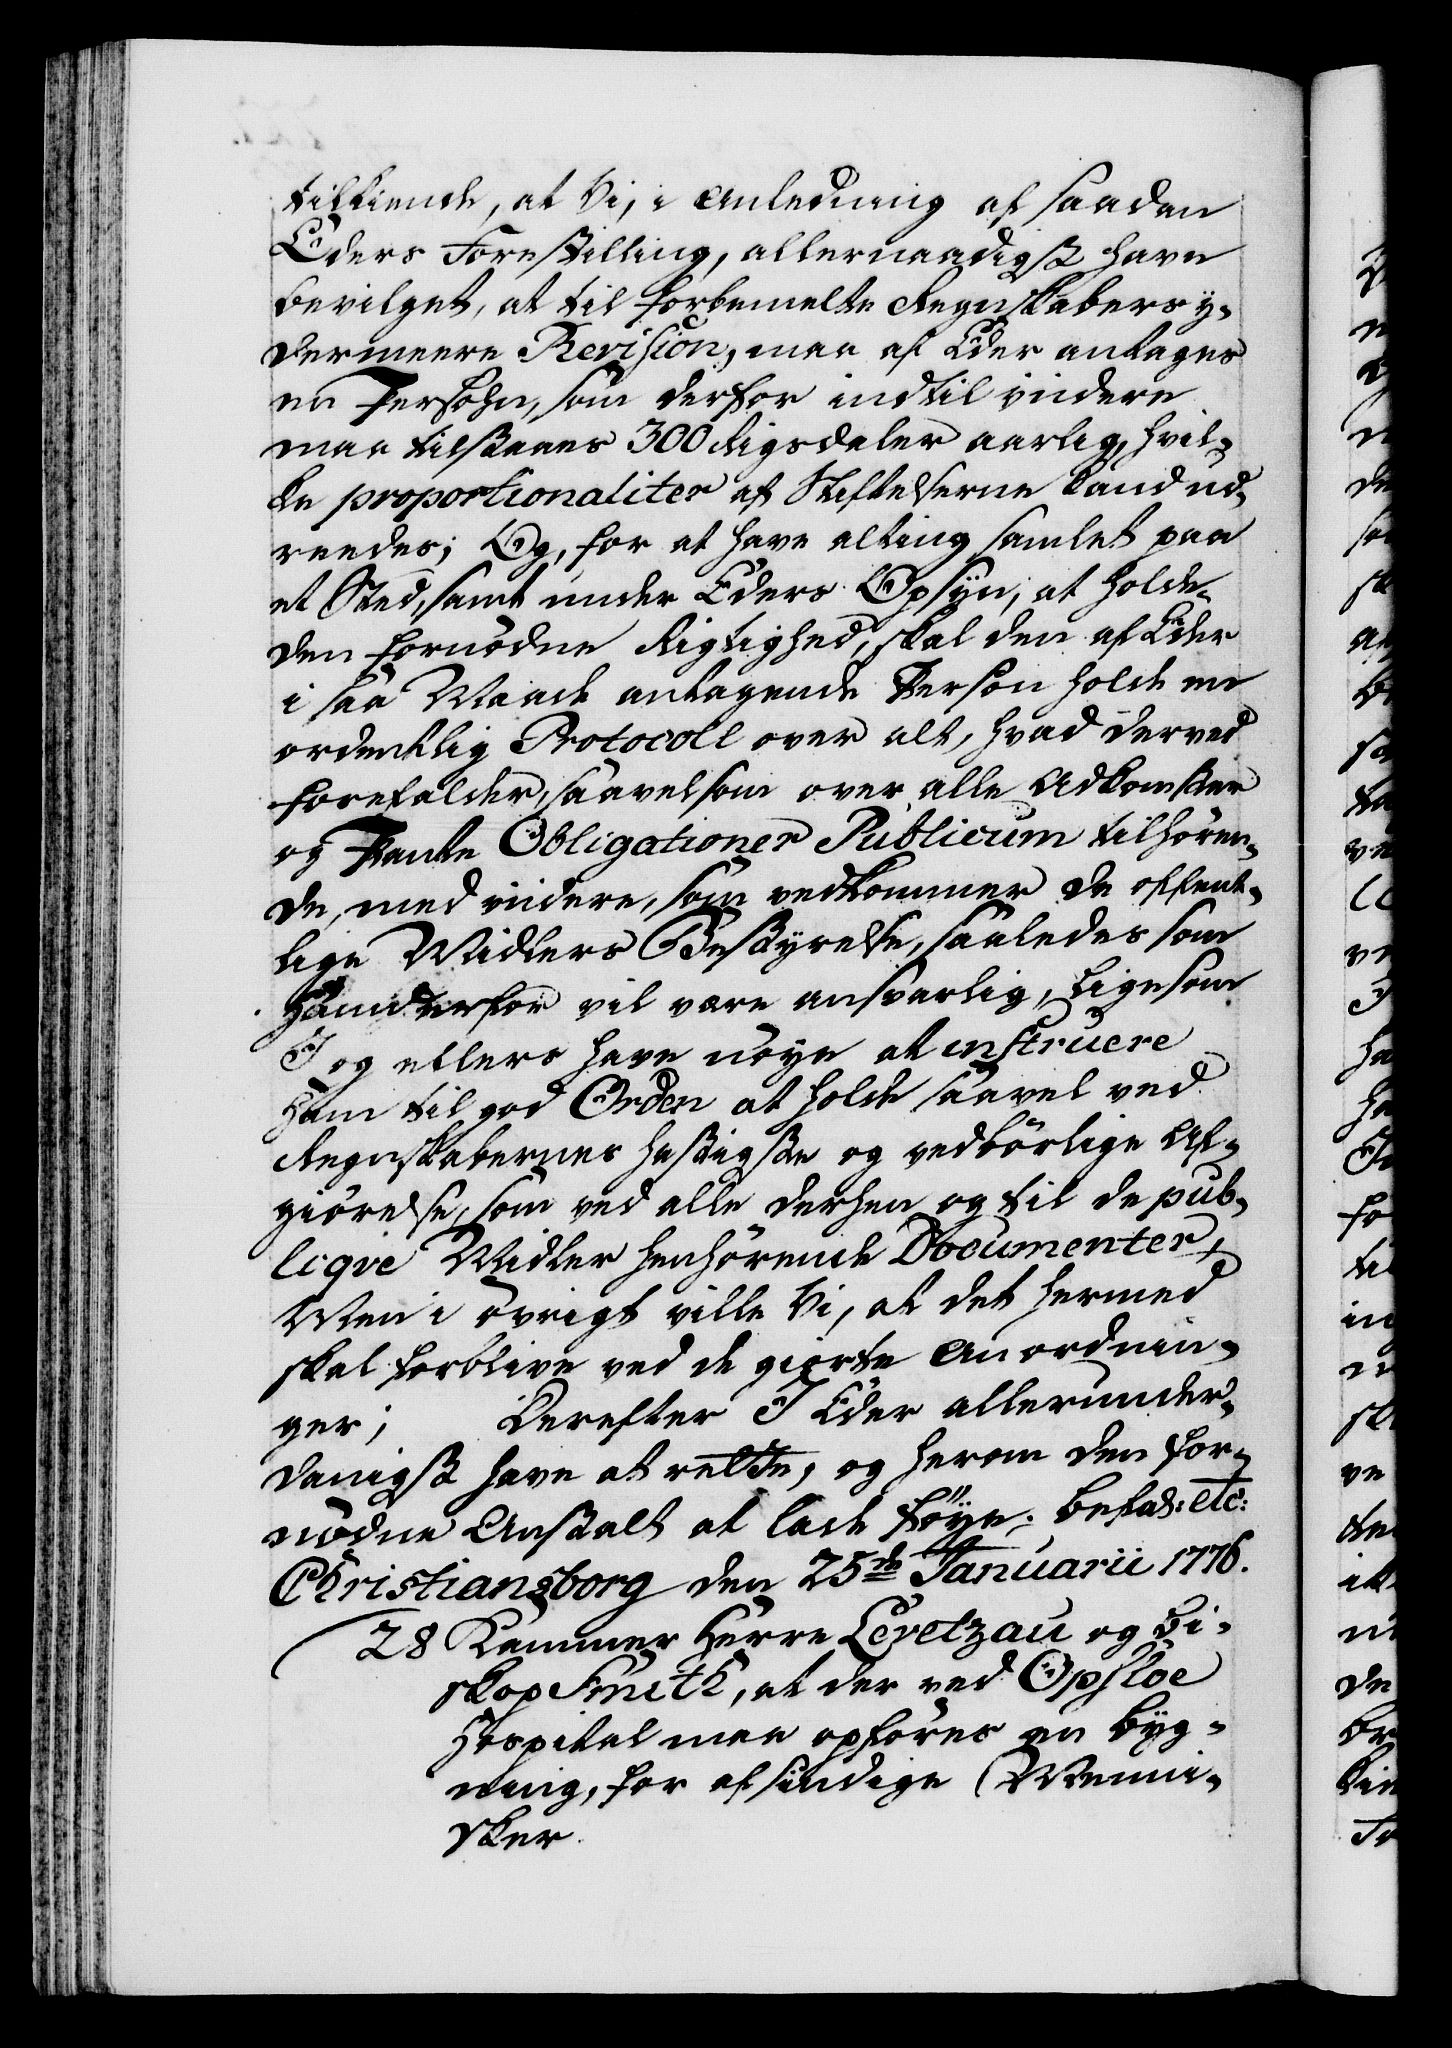 tilkiende, at Vi, i Anledning af saadan
Eders Forestilling, allernaadigst have
bevilget, at til forbemelte Regnskabers y-
dermeere Revision, maa af Eder antages
en Persohn, som derfor indtil viidere
maa tilstaaes 300 Rigsdaler aarlig, hvil-
ke proportionaliter af Stiftelserne kand ud-
reedes; Og, for at have alting samlet paa
et Sted, samt under Eders Opsyn, at holde
den fornødne Rigtighed, skal den af Eder
i saa Maade antagende Person holde en
ordentlig Protocoll over alt, hvad derved
forefalder, saavelsom over alle Adkomster
og Pante Obligationer Publicum tilhøren-
de, med viidere, som vedkommer de offent-
lige Midlers Bestyrelse, saaledes som
Hand derfor vil være ansvarlig, ligesom
I og ellers have nøye at instruere
Ham til god Orden at holde saavel ved
Regnskabernes hastigste og vedbørlige Af-
giørelse, som ved alle derhen og til de pub-
liqve Midler henhørende Documenter,
Men i øvrigt ville Vi, at det hermed
skal forblive ved de giorte Anordnin-
ger; Derefter I Eder allerunder-
danigst have at rette, og herom den for-
nødne Anstalt at lade føye. Befal: etc:
Christiansborg den 25de Januarii 1776.
28 Kammer Herre Levetzau og Bi-
skop Smith, at der ved Opsloe
Hospital maa opføres en Byg-
ning, for afsindige Menni-
sker.